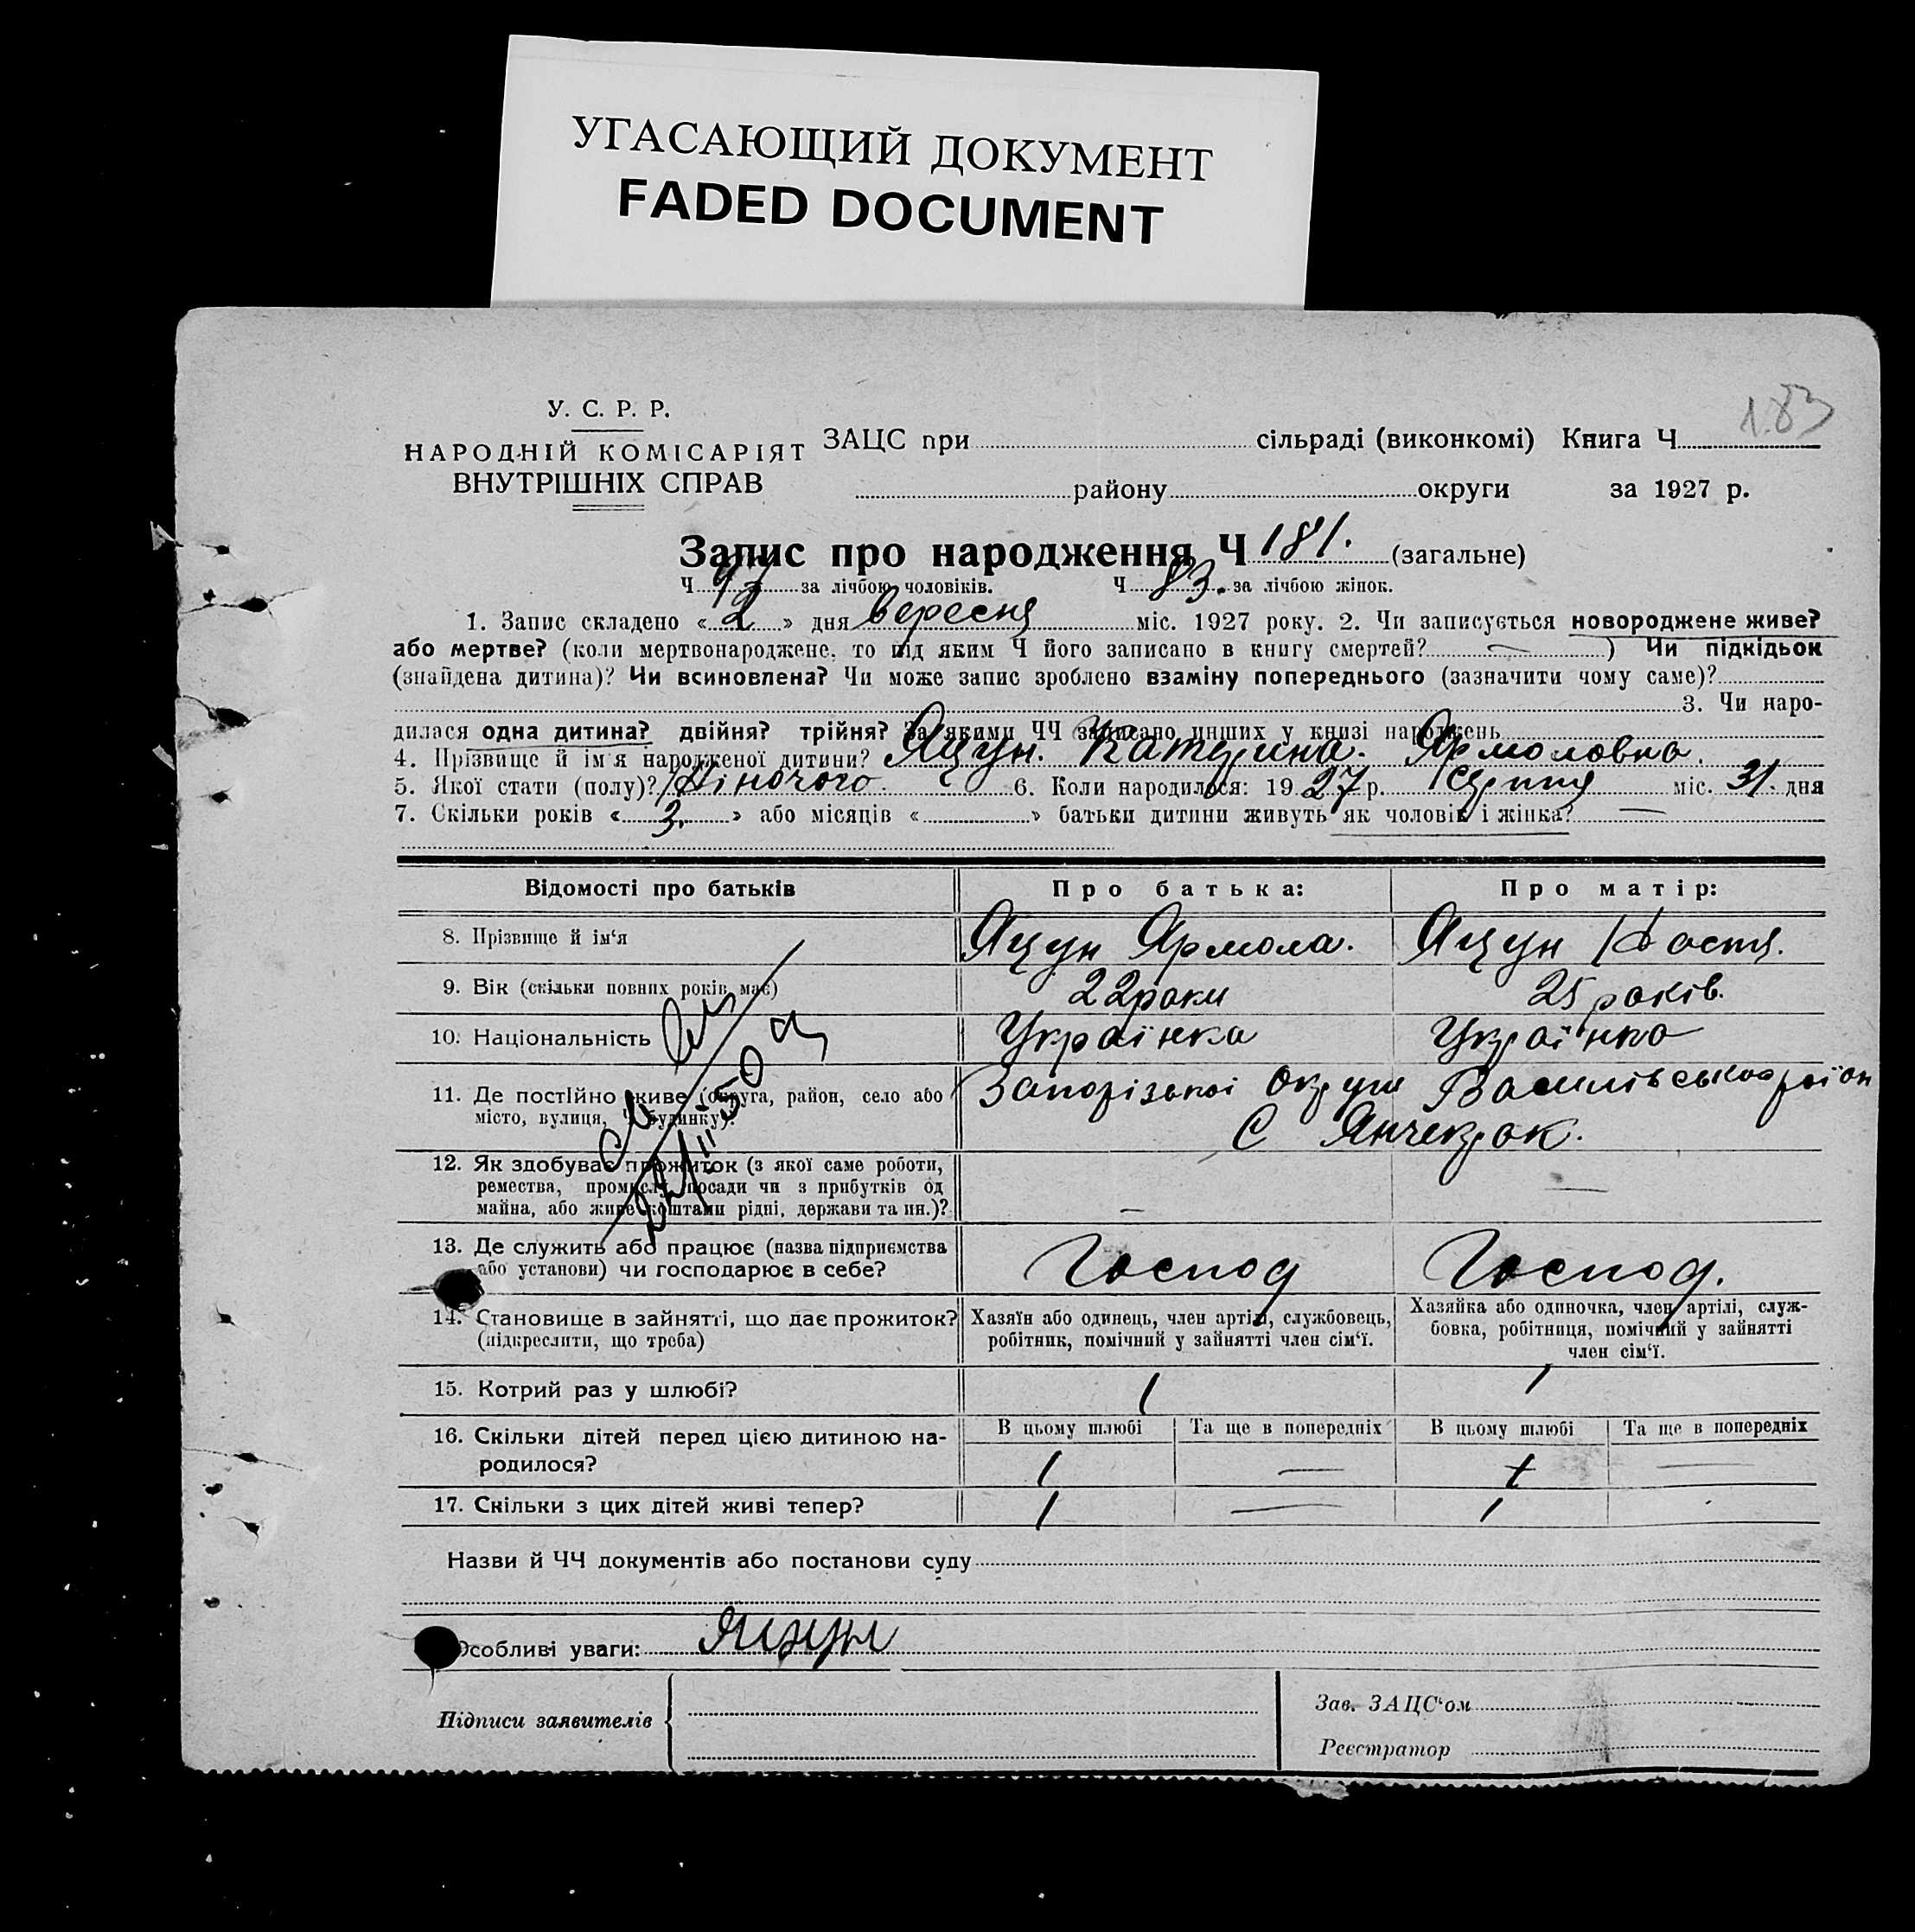 УГАСАЮЩИЙ ДОКУМЕНТ
FADED DOCUMENT
183
У. С. Р. Р.
НАРОДНІЙ КОМІСАРІЯТ
ВНУТРІШНІХ СПРАВ
ЗАЦС при сільраді (виконкомі) Книга Ч
району округи за 1927 р.
Запис про народження Ч 181. (загальне)
Ч за лічбою чоловіків. Ч 83. за лічбою жінок.
1. Запис складено « 2 » дня вересня міс. 1927 року. 2. Чи записується новороджене живе?
або мертве? (коли мертвонароджене, то під яким Ч його записано в книгу смертей? — ) Чи підкідьок
(знайдена дитина)? Чи всиновлена? Чи може запис зроблено взаміну попереднього (зазначити чому саме)?
3. Чи наро-
дилася одна дитина? двійня? трійня? За якими ЧЧ записано инших у книзі народжень
4. Прізвище й ім'я народженої дитини? Яцун. Катерина. Ярмоловна.
5. Якої стати (полу)? Жіночого. 6. Коли народилося: 1927 р. серпня міс. 31. дня
7. Скільки років « 3. » або місяців « » батьки дитини живуть як чоловік і жінка? —
Відомості про батьків Про батька: Про матір:
8. Прізвище й ім'я Яцун Ярмола. Яцун Костя.
9. Вік (скільки повних років має) 22 роки 25 років.
10. Національність Українка Українка
11. Де постійно живе (округа, район, село або Запорізької округи Василівського район
місто, вулиця, Ч будинку)? С Янчекрак.
12. Як здобуває прожиток (з якої саме роботи,
ремества, промислу, посади чи з прибутків од
майна, або живе коштами рідні, держави та ин.)? — —
13. Де служить або працює (назва підприємства
або установи) чи господарює в себе? Господ Господ.
14. Становище в зайнятті, що дає прожиток? Хазяїн або одинець, член артілі, службовець, Хазяйка або одиночка, член артілі, служ-
(підкреслити, що треба) робітник, помічний у зайнятті член сім'ї. бовка, робітниця, помічний у зайнятті
член сім'ї.
15. Котрий раз у шлюбі? 1 1
16. Скільки дітей перед цією дитиною на- В цьому шлюбі Та ще в попередніх В цьому шлюбі Та ще в попередніх
родилося? 1 — 1 —
17. Скільки з цих дітей живі тепер? 1 — 1
Назви й ЧЧ документів або постанови суду
Особливі уваги: Яцун
Підписи заявителів
Зав. ЗАЦС'ом
Реєстратор